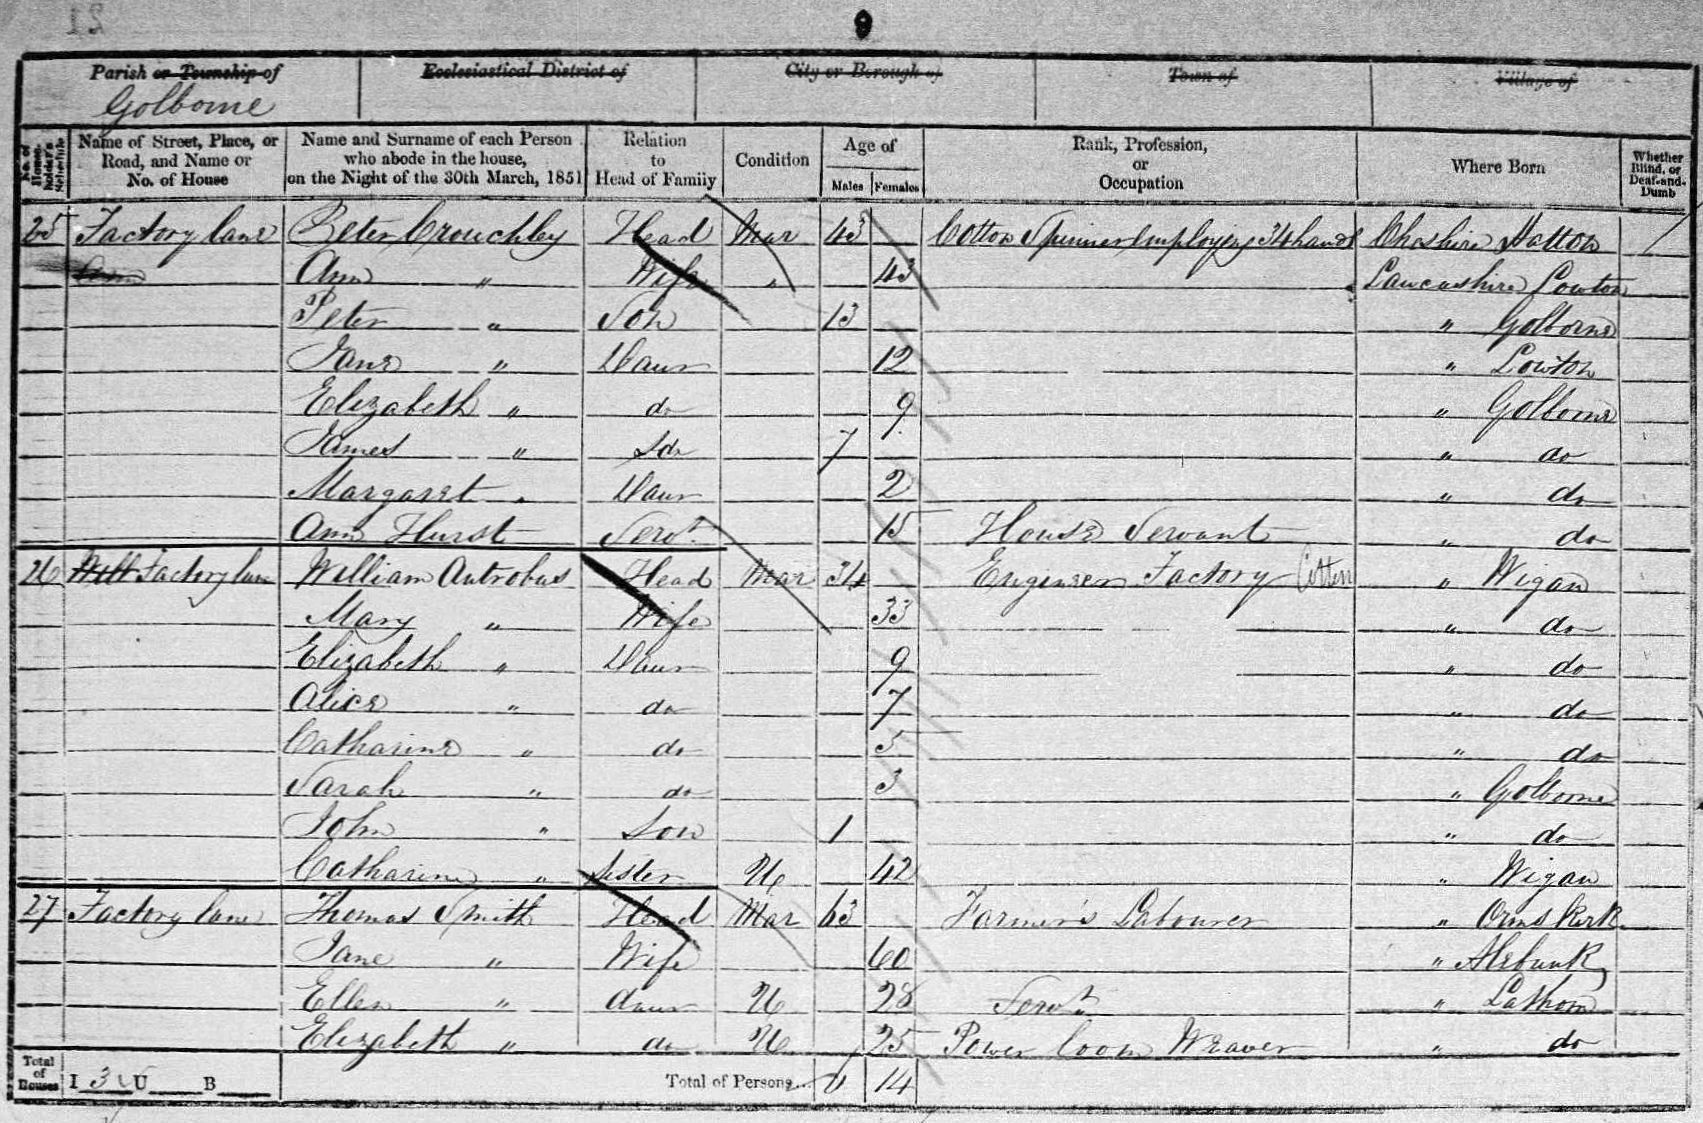 9
Parish or Township of Ecclesiastical District of City or Borough of Town of Village of
Golborne
No. of House-holder's Schedule Name of Street, Place, or Road, and Name or No. of House Name and Surname of each Person who abode in the house, on the Night of the 30th March, 1851 Relation to Head of Family Condition Age of Males Females Rank, Profession, or Occupation Where Born Whether Blind, or Deaf-and-Dumb
25 Factory lane Peter Crouchley Head Mar 43 Cotton Spinner employing 34 hands Cheshire Hatton
Ann " Wife " 43 Lancashire Lowton
Peter " Son 13 " Golborne
Jane " Daur 12 " Lowton
Elizabeth " do 9 " Golborne
James " Son 7 " do
Margaret " Daur 2 " do
Ann Hurst Servt 15 House Servant " do
26 Factory lane William Antrobus Head Mar 34 Engineer Factory Cotton " Wigan
Mary " Wife 33 " do
Elizabeth " Daur 9 " do
Alice " do 7 " do
Catharine " do 5 " do
Sarah " do 3 " Golborne
John " Son 1 " do
Catharine " Sister U 42 " Wigan
27 Factory lane Thomas Smith Head Mar 63 Farmer's Labourer " Ormskirk
Jane " Wife 60 "
Ellen " daur U 28 Servt " Lathom
Elizabeth " do U 25 Power loom Weaver " do
Total of Houses I 3 U B Total of Persons... 6 14